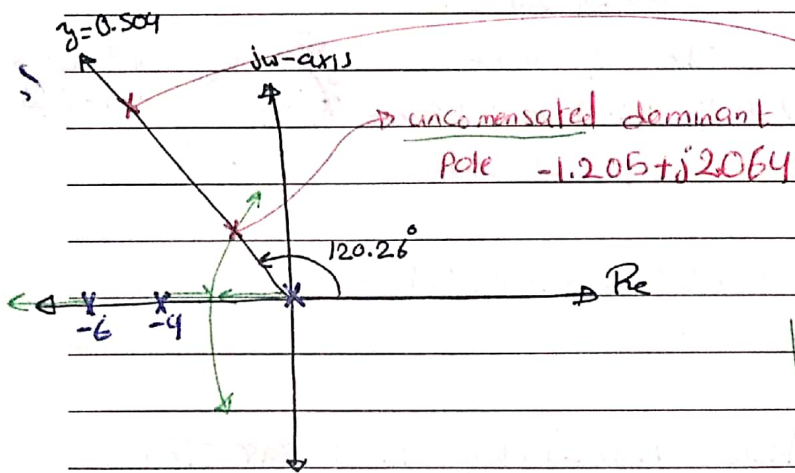 ƺ=0.504
jw-axis
uncomensated dominant
Pole -1.205+j2.064
120.26°
Re
-6
-4